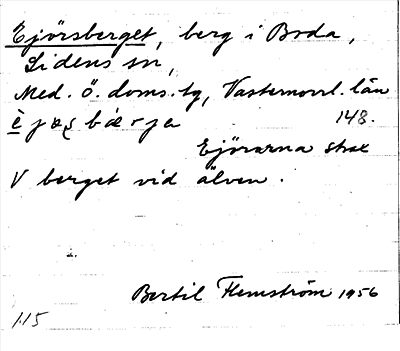 Ejörsberget, berg i Boda,
Lidens sn,
Med. ö. doms. tg, Västernorrl. län
148.
Ejörarna strax
V berget vid älven.
Bertil Flemström 1956
1:15